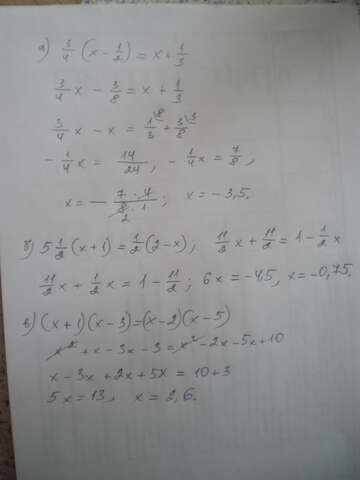 а) 3/4 (x - 1/2) = x + 1/3
3/4 x - 3/8 = x + 1/3
3/4 x - x = 1/3 \8 + 3/8 \3
- 1/4 x = 14/24 ; - 1/4 x = 7/8 ,
x = - 7·4/8·1 2 ; x = - 3,5.
б) 5 1/2 (x + 1) = 1/2 (2 - x) ; 11/2 x + 11/2 = 1 - 1/2 x
11/2 x + 1/2 x = 1 - 11/2 ; 6x = -4,5, x = -0,75.
в) (x + 1)(x - 3) = (x - 2)(x - 5)
x² + x - 3x - 3 = x² - 2x - 5x + 10
x - 3x + 2x + 5x = 10 + 3
5x = 13, x = 2,6.